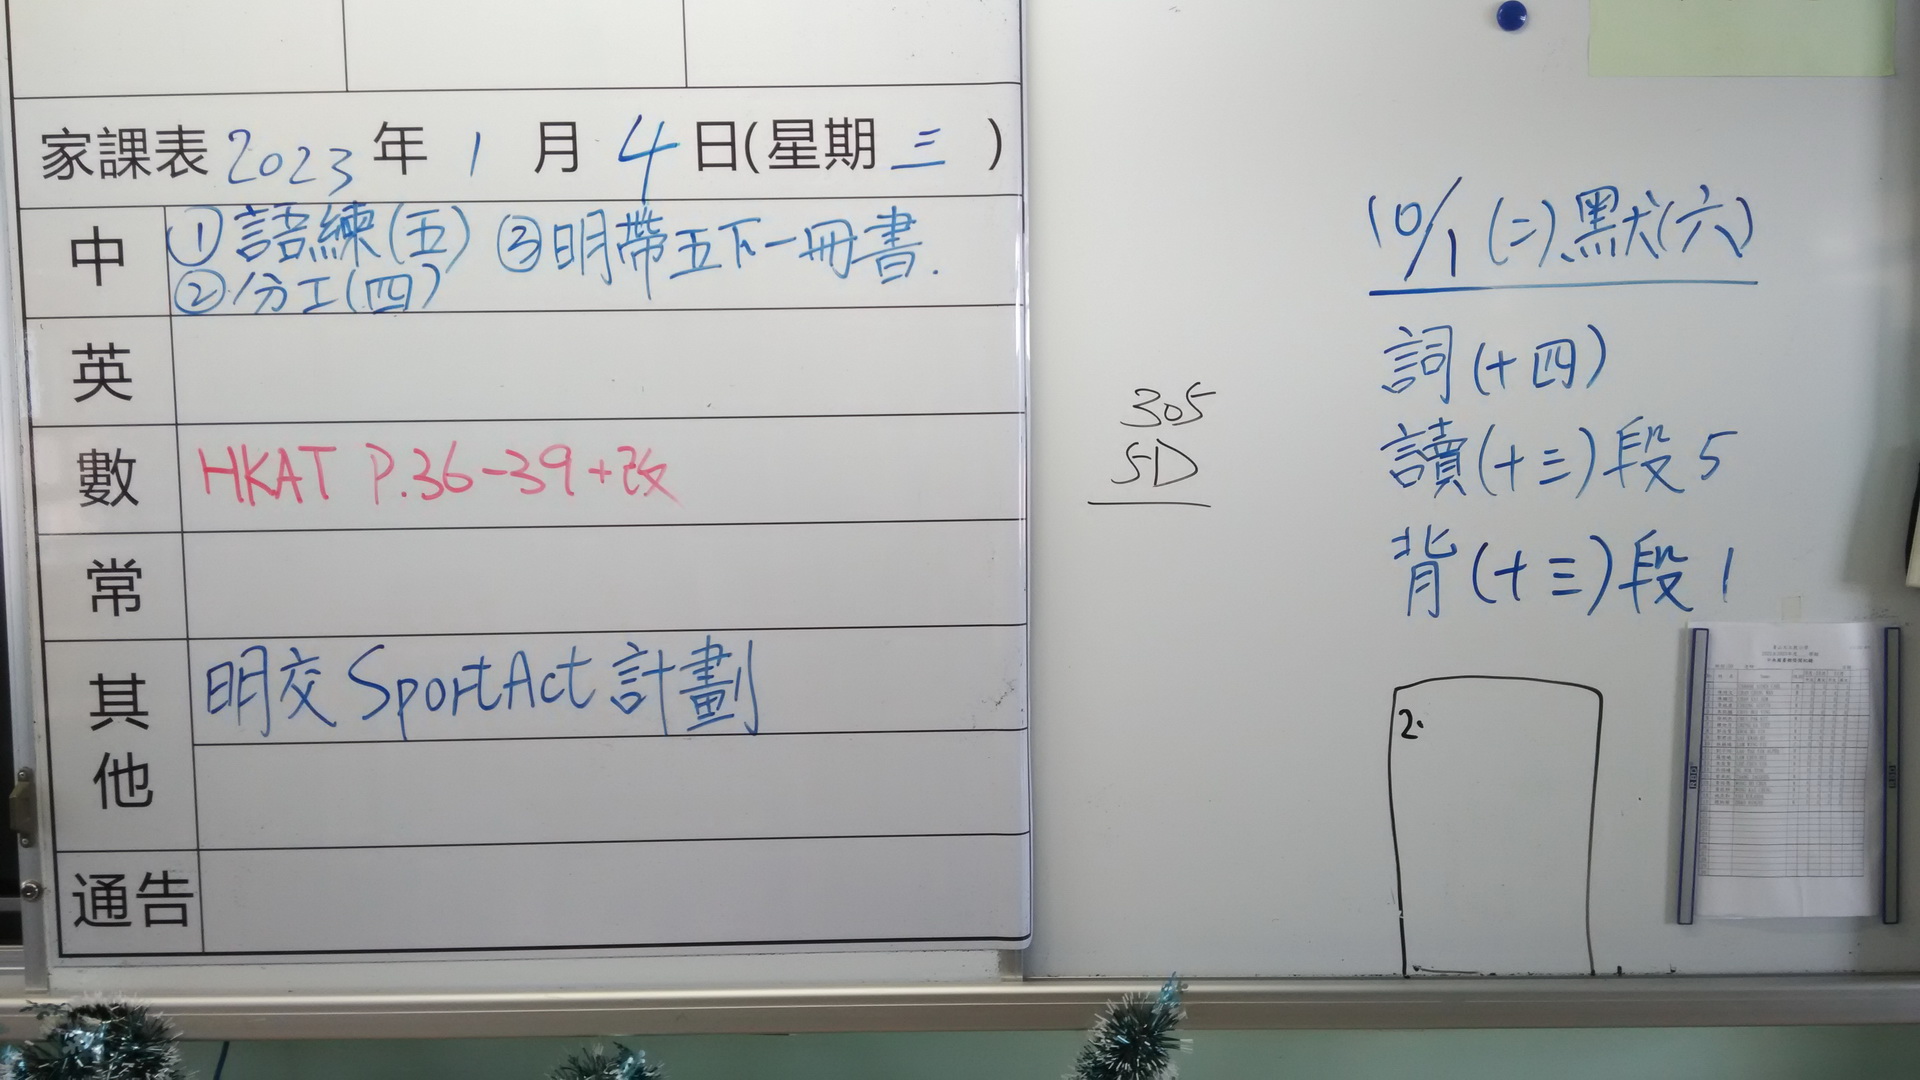 家課表 2023 年 1 月 4 日(星期 三 )
中 ①語練(五) ③明帶五下一冊書.
②分工(四)
英
數 HKAT P.36-39+改
常
其他 明交 SportAct 計劃
通告
305
5D
10/1 (二) 默(六)
詞(十四)
讀(十三)段5
背(十三)段1
2.